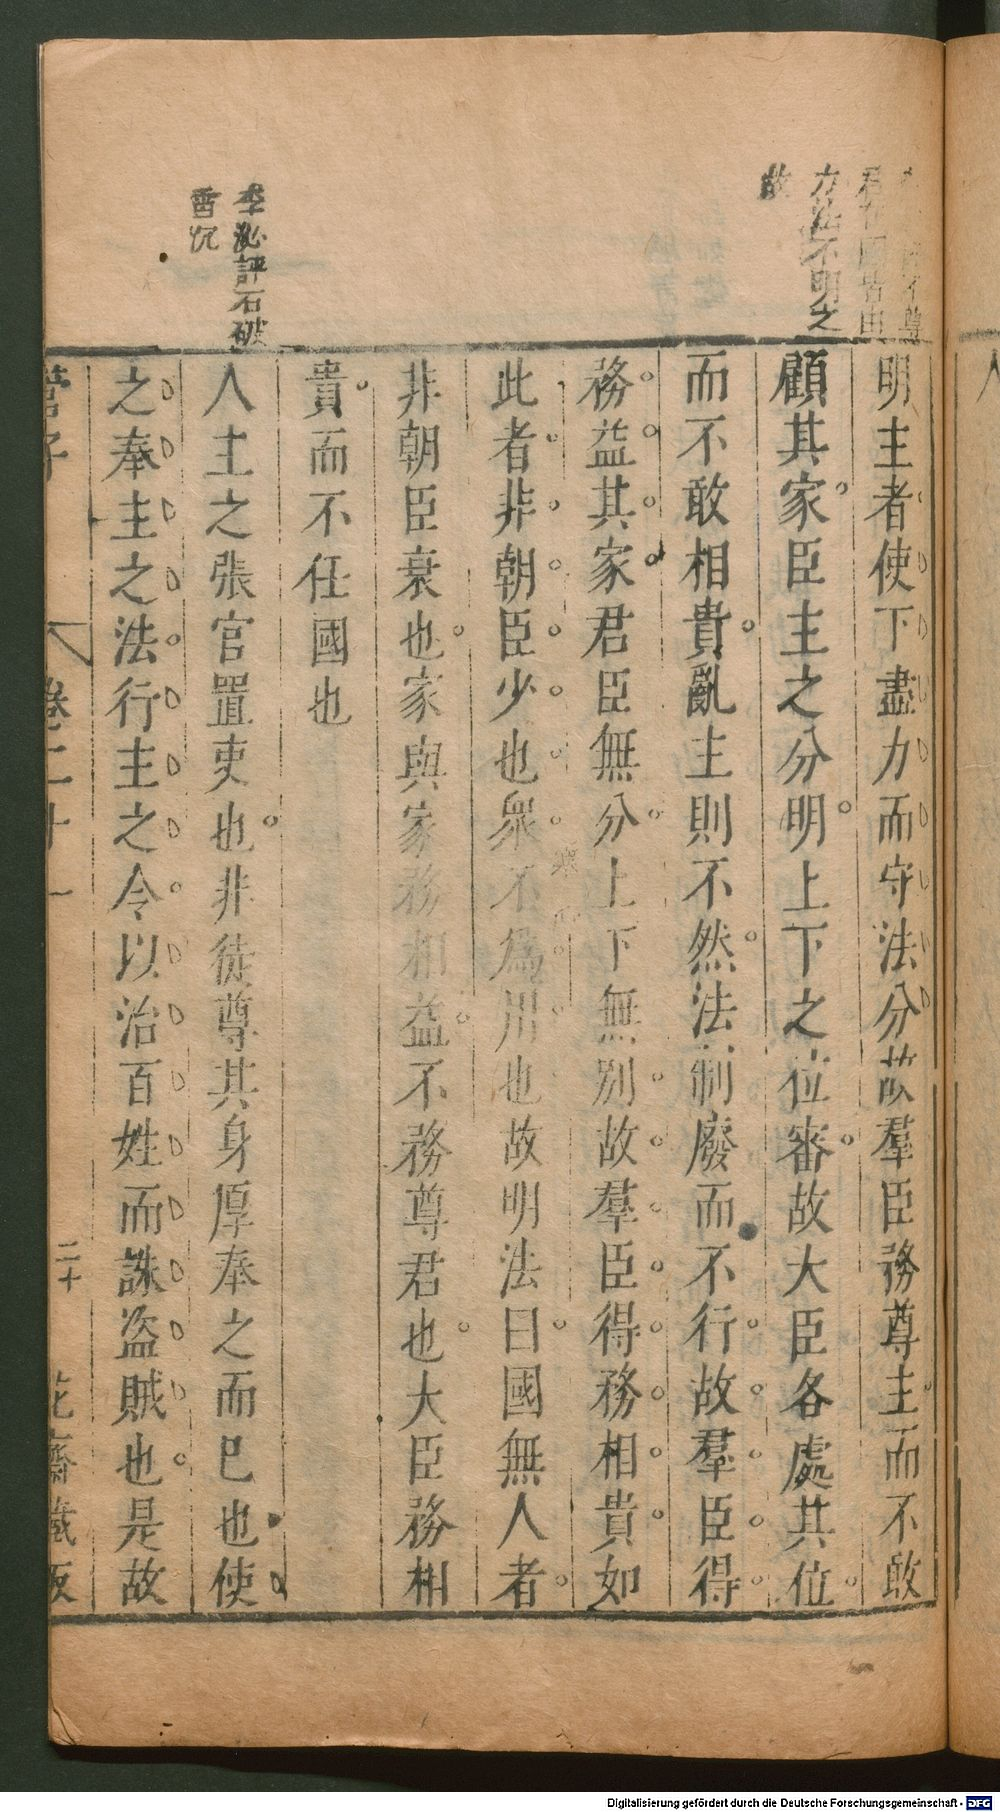 君在國皆由
力法不明之
故
明主者使下盡力而守法分故羣臣務尊主而不敢
顧其家臣主之分明上下之位審故大臣各處其位
而不敢相貴亂主則不然法制廢而不行故羣臣得
務益其家君臣無分上下無別故羣臣得務相貴如
此者非朝臣少也衆不爲用也故明法曰國無人者
非朝臣衰也家與家務相益不務尊君也大臣務相
貴而不任國也
李泌評石破
人主之張官置吏也非徒尊其身厚奉之而巳也使
之奉主之法行主之令以治百姓而誅盗賊也是故
管子
卷二十一
二十
花齋藏板
Digitalisierung gefördert durch die Deutsche Forschungsgemeinschaft - DFG